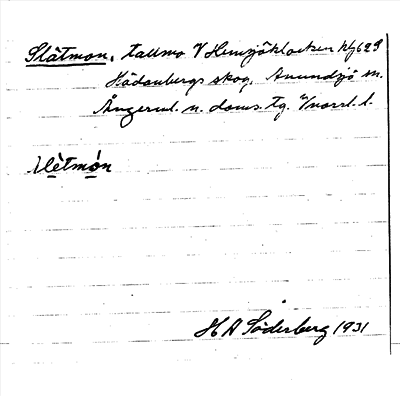 Slåtmon, tallmo V Hemsjöklocken hfg 629
Hädanbergs skog, Anundsjö sn.
Ångerml. n. doms. tg. V/norrl. l.
slètmòn
H A Söderberg 1931